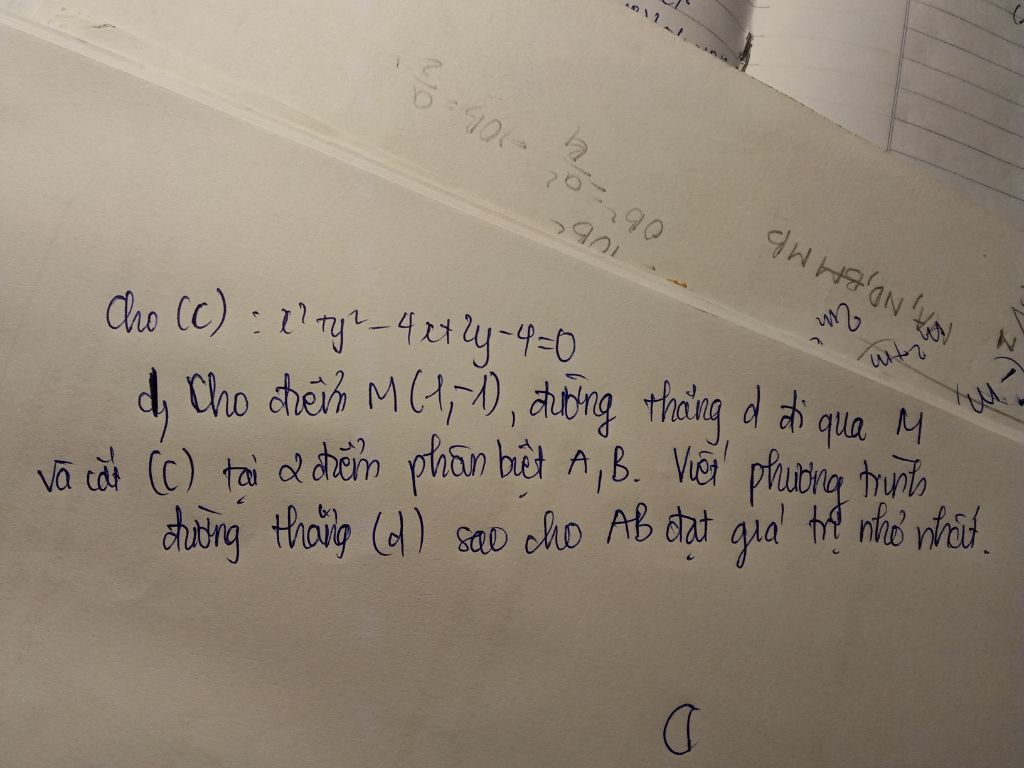 Cho (C) : x²+y²-4x+2y-4=0
d, Cho điểm M(1,-1), đường thẳng d đi qua M
và cắt (C) tại 2 điểm phân biệt A, B. Viết phương trình
đường thẳng (d) sao cho AB đạt giá trị nhỏ nhất.